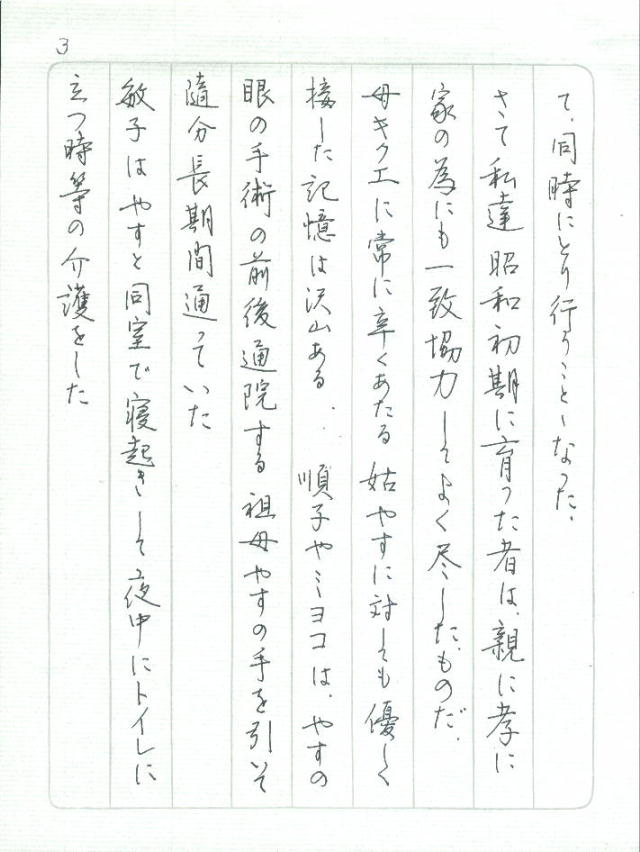 3
て、同時にとり行うことゝなった、
さて私達昭和初期に育った者は、親に孝に
家の為にも一致協力してよく尽したものだ、
母キクエに常に辛くあたる姑やすに対しても優しく
接した記憶は沢山ある、順子やミヨコは、やすの
眼の手術の前後通院する祖母やすの手を引いて
随分長期間通っていた
敏子はやすと同室で寝起きして夜中にトイレに
立つ時等の介護をした